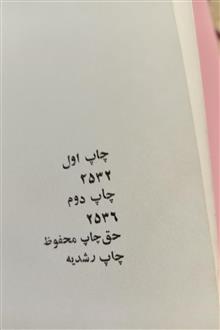 چاپ اول
۲۵۳۲
چاپ دوم
۲۵۳۶
حق چاپ محفوظ
چاپ رشدیه